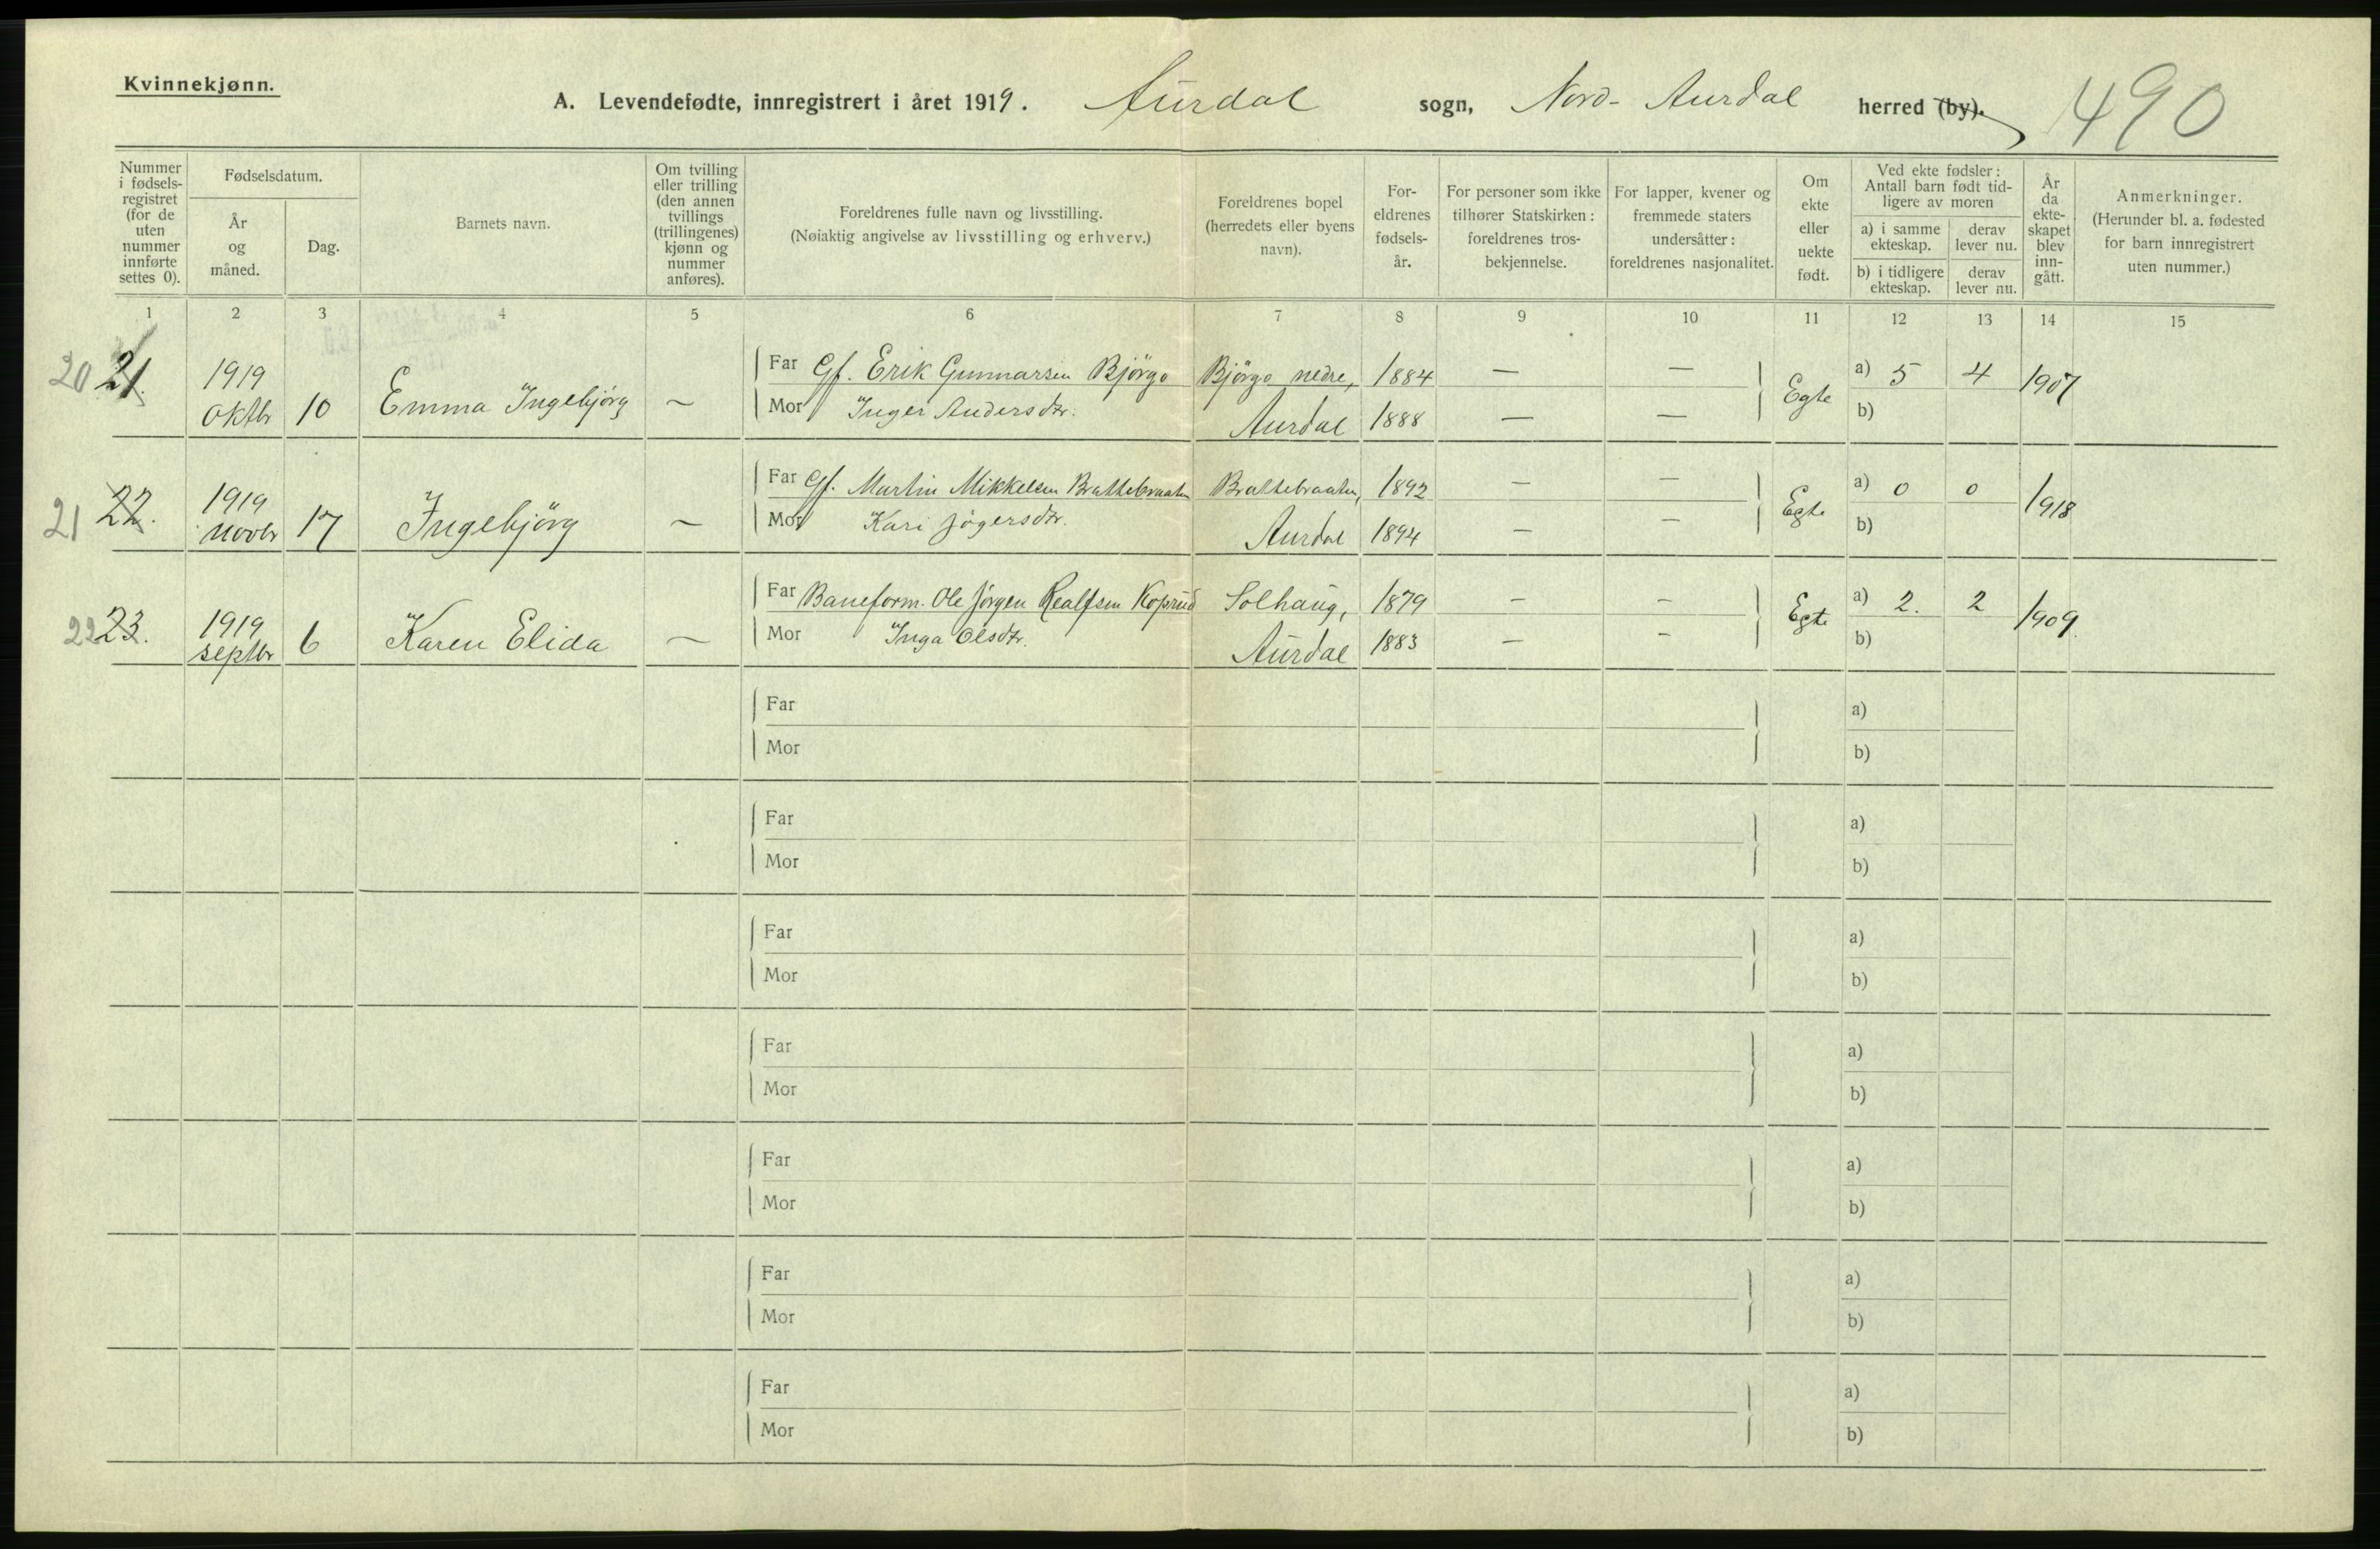 Kvinnekjønn.
A. Levendefødte, innregistrert i året 1919. Aurdal sogn, Nord-Aurdal herred (by). 490
Nummer i fødsels-registret (for de uten nummer innførte settes 0).
Fødselsdatum.
År og måned.
Dag.
Barnets navn.
Om tvilling eller trilling (den annen tvillings (trillingenes) kjønn og nummer anføres).
Foreldrenes fulle navn og livsstilling.
(Nøiaktig angivelse av livsstilling og erhverv.)
Foreldrenes bopel (herredets eller byens navn).
For-eldrenes fødsels-år.
For personer som ikke tilhører Statskirken: foreldrenes tros-bekjennelse.
For lapper, kvener og fremmede staters undersåtter: foreldrenes nasjonalitet.
Om ekte eller uekte født.
Ved ekte fødsler: Antall barn født tid-ligere av moren
a) i samme ekteskap.
derav lever nu.
b) i tidligere ekteskap.
derav lever nu.
År da ekte-skapet blev inn-gått.
Anmerkninger.
(Herunder bl. a. fødested for barn innregistrert uten nummer.)
1 2 3 4 5 6 7 8 9 10 11 12 13 14 15
20 21. 1919 Oktbr 10 Emma Ingebjörg ~
Far Gf. Erik Gunnarsen Björgo Björgo nedre, 1884 — — Egte a) 5 4 1907
Mor Inger Andersdtr. Aurdal 1888 — — b)
21 22. 1919 Novbr 17 Ingebjörg ~
Far Gf. Martin Mikkelsen Brattebraaten Brattebraaten, 1892 — — Egte a) 0 0 1918
Mor Kari Jögersdtr. Aurdal 1894 — — b)
22 23. 1919 Septbr 6 Karen Elida ~
Far Baneform. Ole Jörgen Realfsen Koprud Solhaug, 1879 — — Egte a) 2. 2 1909.
Mor Inga Olsdtr. Aurdal 1883 — — b)
Far a)
Mor b)
Far a)
Mor b)
Far a)
Mor b)
Far a)
Mor b)
Far a)
Mor b)
Far a)
Mor b)
Far a)
Mor b)